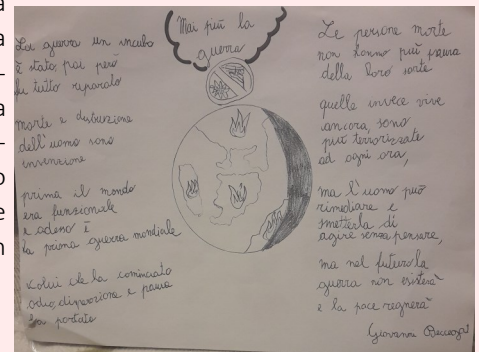 Mai più la
guerra
La guerra un incubo
è stato, poi però
fu tutto riparato
morte e distruzione
dell'uomo sono
invenzione
prima il mondo
era funzionale
e adesso è
la prima guerra mondiale
colui che la cominciato
odio, disperazione e paura
ha portato
Le persone morte
non hanno più paura
della loro sorte
quelle invece vive
ancora, sono
più terrorizzate
ad ogni ora,
ma l'uomo può
rimediare e
smetterla di
agire senza pensare,
ma nel futuro la
guerra non esisterà
e la pace regnerà
Giovanni